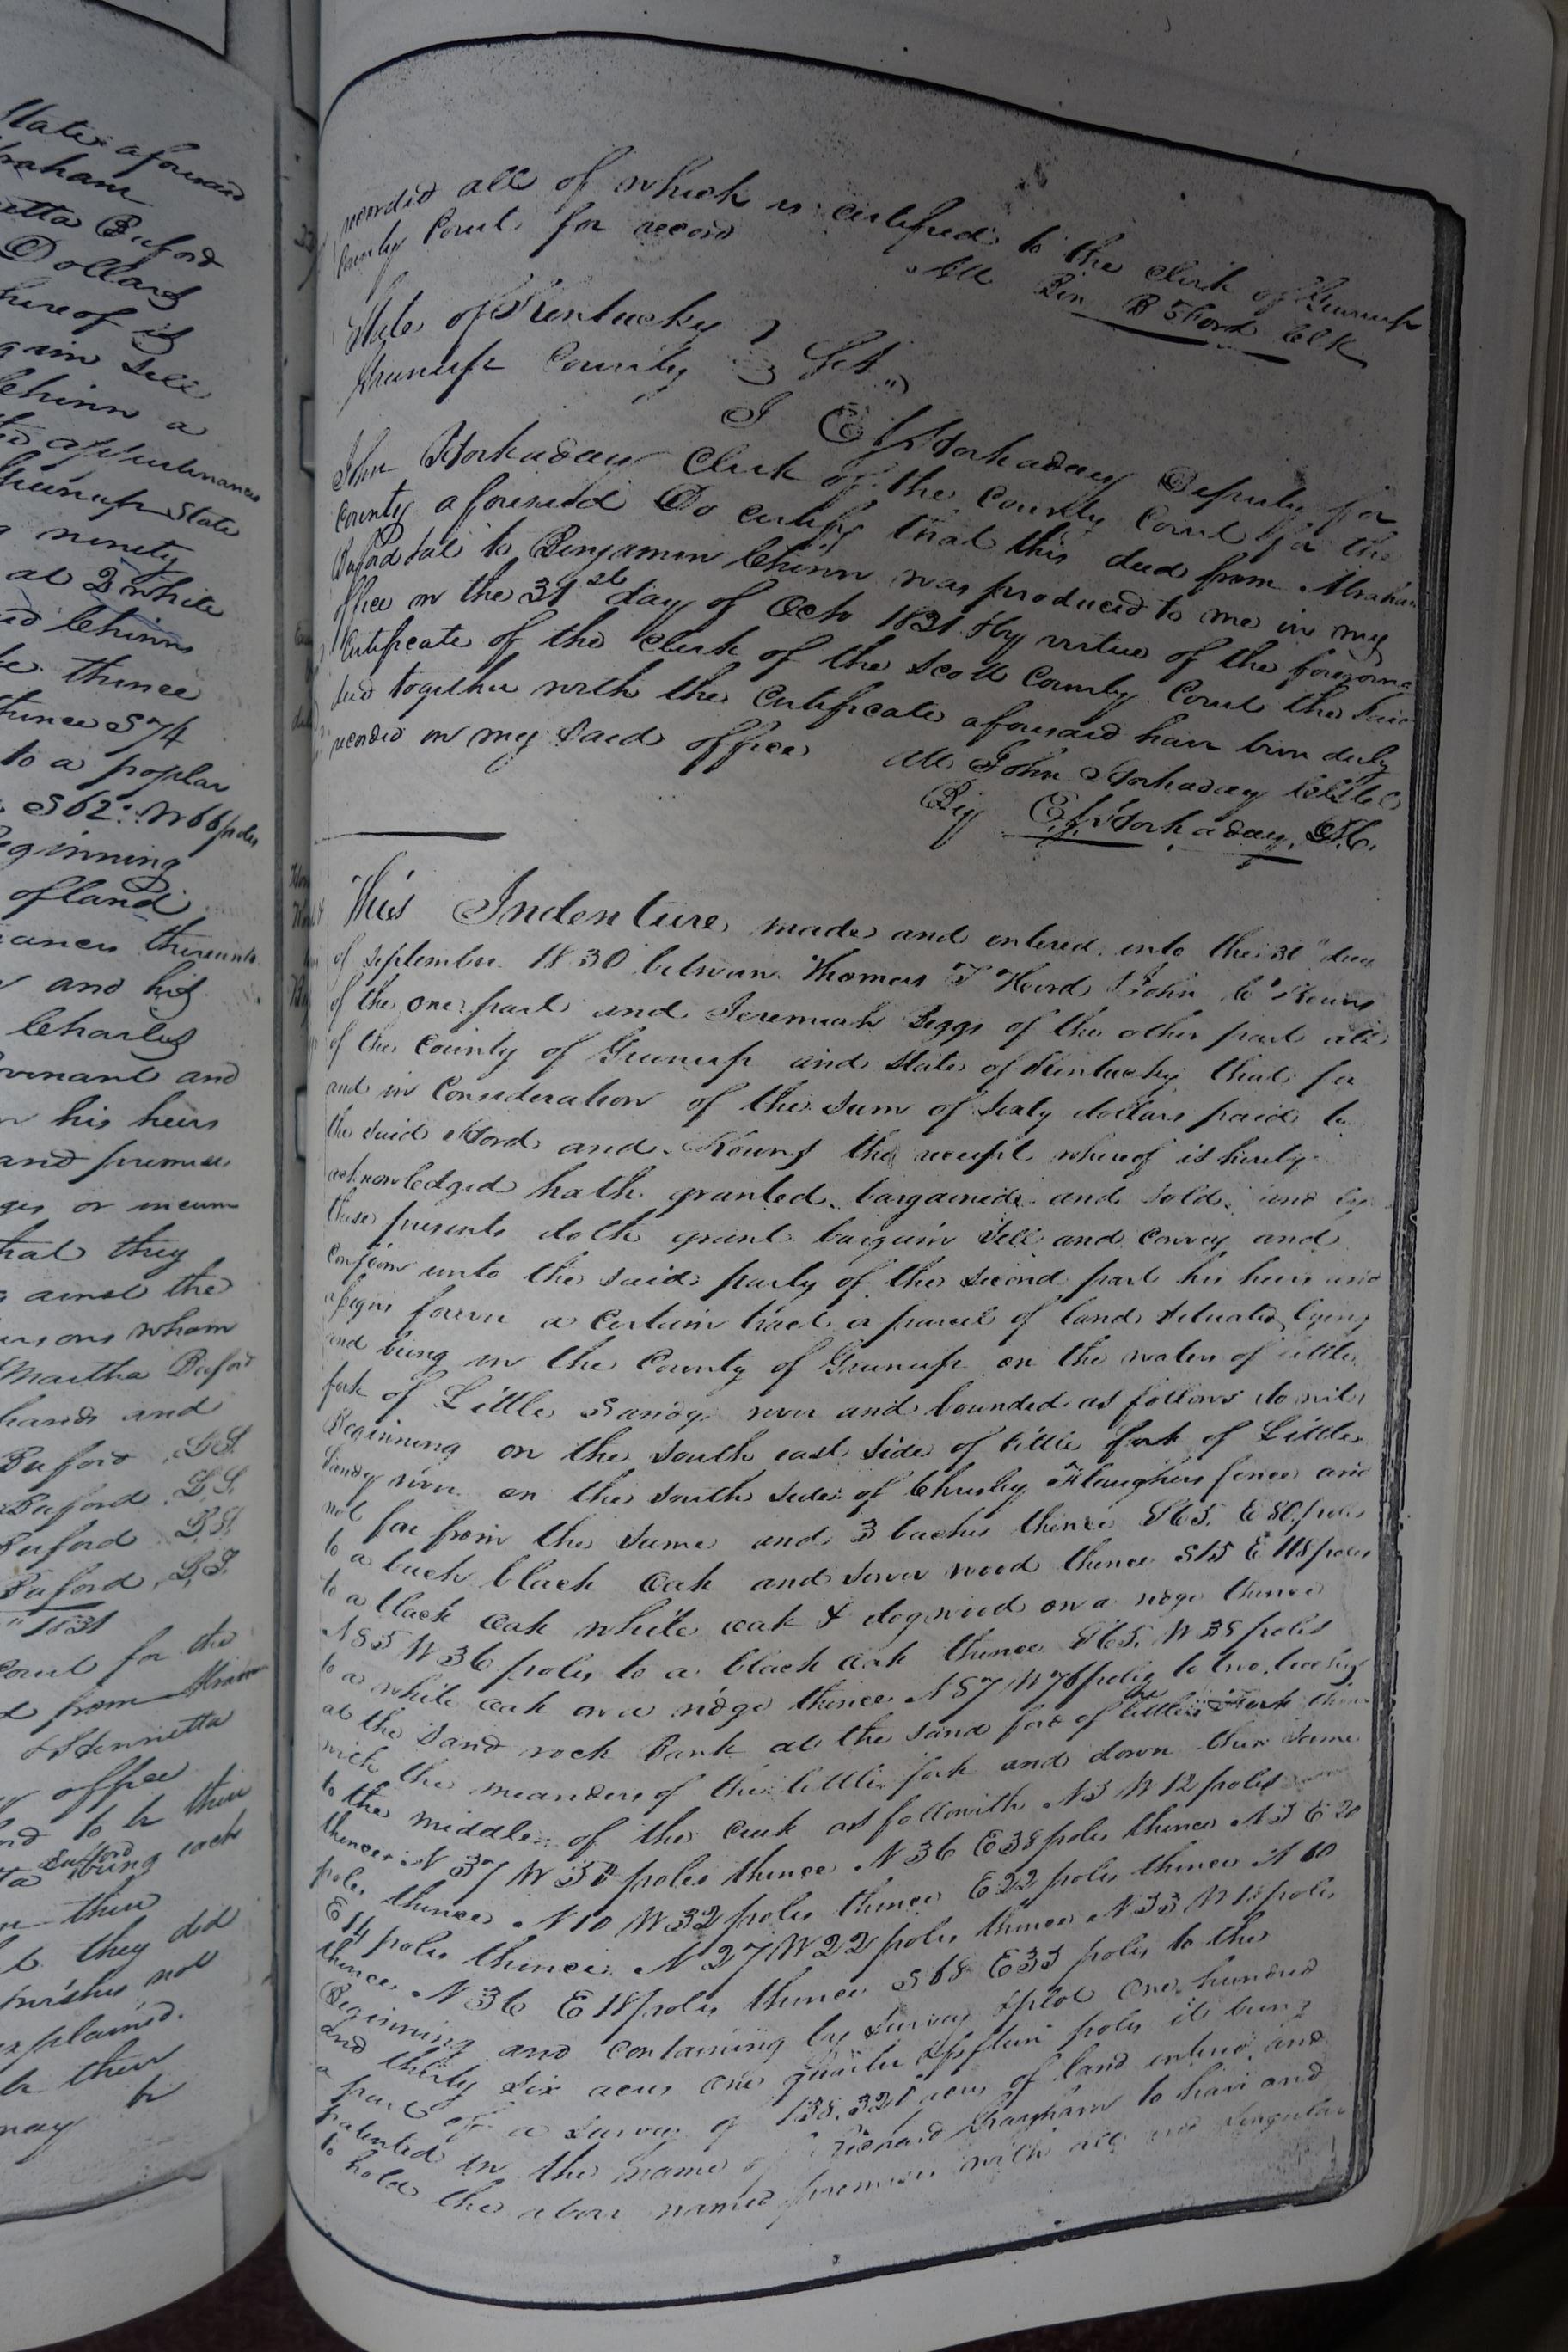 State aforesaid
Abraham
etta Buford
Dollars
hereof is
gain sell
Chinn a
appurtenances
Greenup State
ninety
at 2 white
Chinns
thence
thence S 74
to a poplar
S 62: W 66 poles
eginning
of land
ances thereunto
and his
Charles
venant and
his heirs
and premises
ges or incum
that they
gainst the
ersons whom
Martha Buford
hands and
Buford L.S.
Buford L.S.
Buford L.S.
Buford L.S.
1831
Court for the
from
Hennetta
office
to be their
Buford
being each
their
they did
wishes not
explained.
their
may be
recorded all of which is certified to the Clerk of Greenup
County Court for record
Att Ben B Ford Clk
State of Kentucky
Greenup County Sct
I E Hockaday Deputy for
John Hockaday Clerk of the County Court for the
County aforesaid Do certify that this deed from Abraham
Buford to Benjamin Chinn was produced to me in my
office on the 31st day of Oct 1831 By virtue of the foregoing
Certificate of the Clerk of the Scott County Court the said
deed together with the Certificate aforesaid have been duly
recorded in my said office
Att John Hockaday
By E Hockaday, D.C.
This Indenture made and entered into the 30" day
of September 1830 between Thomas T Hord & John C Kouns
of the one part and Jeremiah Biggs of the other part all
of the County of Greenup and State of Kentucky that for
and in Consideration of the sum of sixty dollars paid to
the said Hord and Kouns the receipt whereof is hereby
acknowledged hath granted bargained and sold and by
these presents doth grant bargain sell and convey and
confirm unto the said party of the second part his heirs and
assigns forever a certain tract or parcel of land situate lying
and being in the County of Greenup on the waters of little
fork of Little Sandy river and bounded as follows to wit,
Beginning on the south east side of little fork of Little
Sandy river on the south side of Chrisley Flaughers fence and
not far from the same and 3 beeches thence S 65 E 80 poles
to a beech black oak and sower wood thence S 15 E 118 poles
to a black oak white oak & dogwood on a ridge thence
N 85 W 36 poles to a black oak thence S 65 W 38 poles
to a white oak on a ridge thence N 87 W 76 poles to two
at the sand rock bank at the sand ford of the little Fork thence
with the meanders of the little fork and down the same
to the middle of the creek as followith N 3 W 12 poles
thence N 37 W poles thence N 36 E 38 poles thence N 5 E 20
poles thence N 10 W 32 poles thence E 22 poles thence N 60
E 14 poles thence N 27 W 22 poles thence N 33 W 18 poles
thence N 36 E 18 poles thence S 68 E 35 poles to the
Beginning and containing by survey & plot one hundred
and thirty six acres one quarter & fifteen poles it being
a part of a survey of 138,321 acres of land entered and
patented in the name of Richard Graham to have and
to hold the above named premises with all and singular